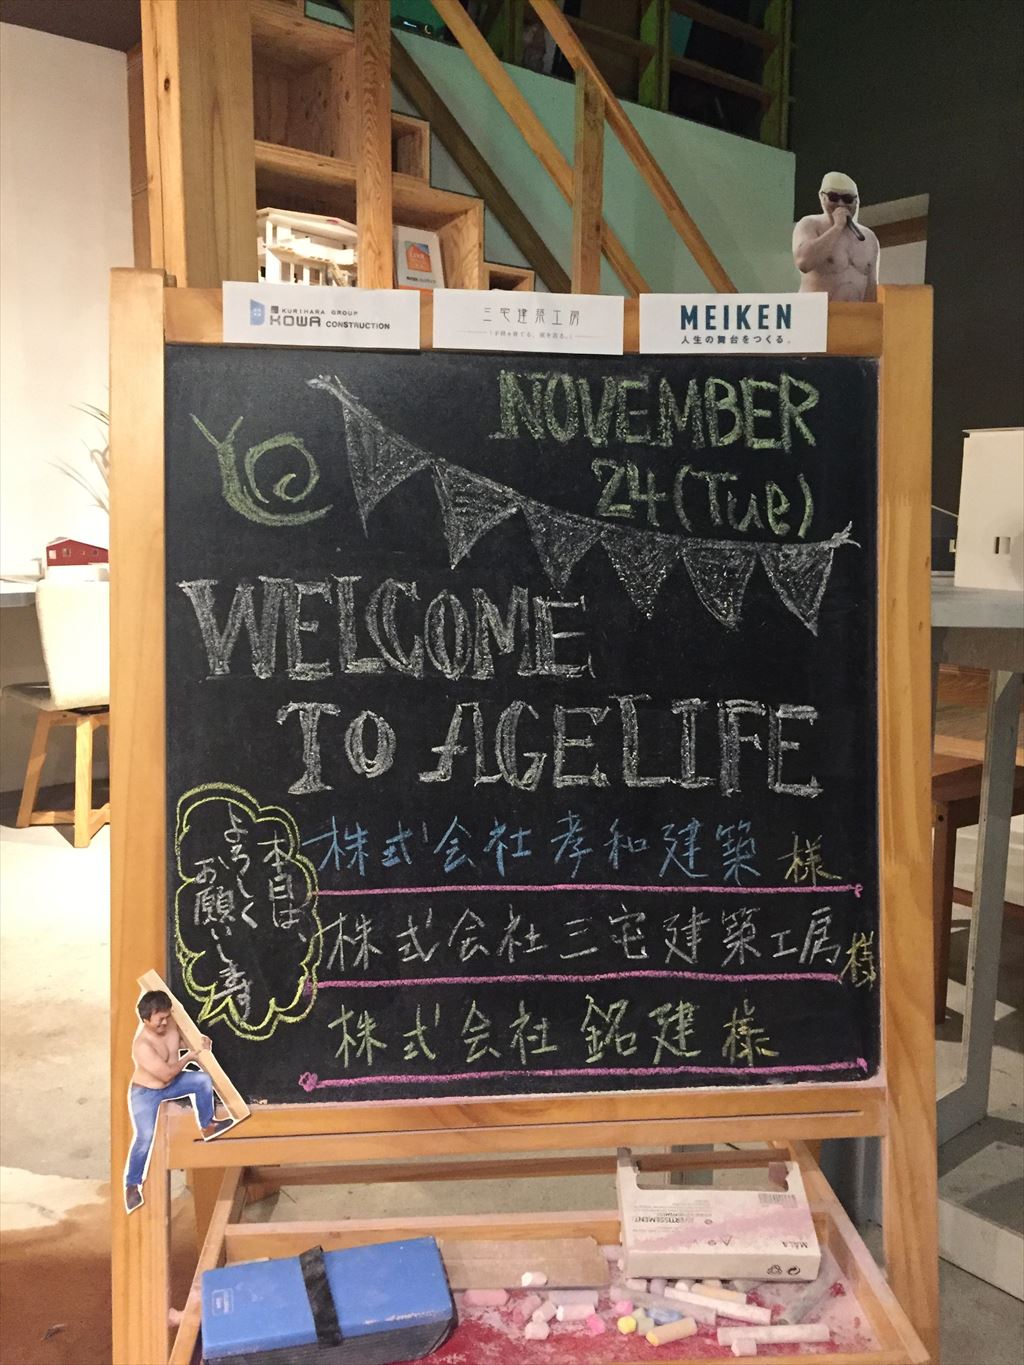 KURIHARA GROUP
KOWA CONSTRUCTION
三宅建築工房
MEIKEN
人生の舞台をつくる。
NOVEMBER
24(Tue)
WELCOME
TO AGELIFE
本日は、
よろしく
お願いします
株式会社孝和建築 様
株式会社三宅建築工房様
株式会社 銘建 様
AVERTISSEMENT
MÅLA